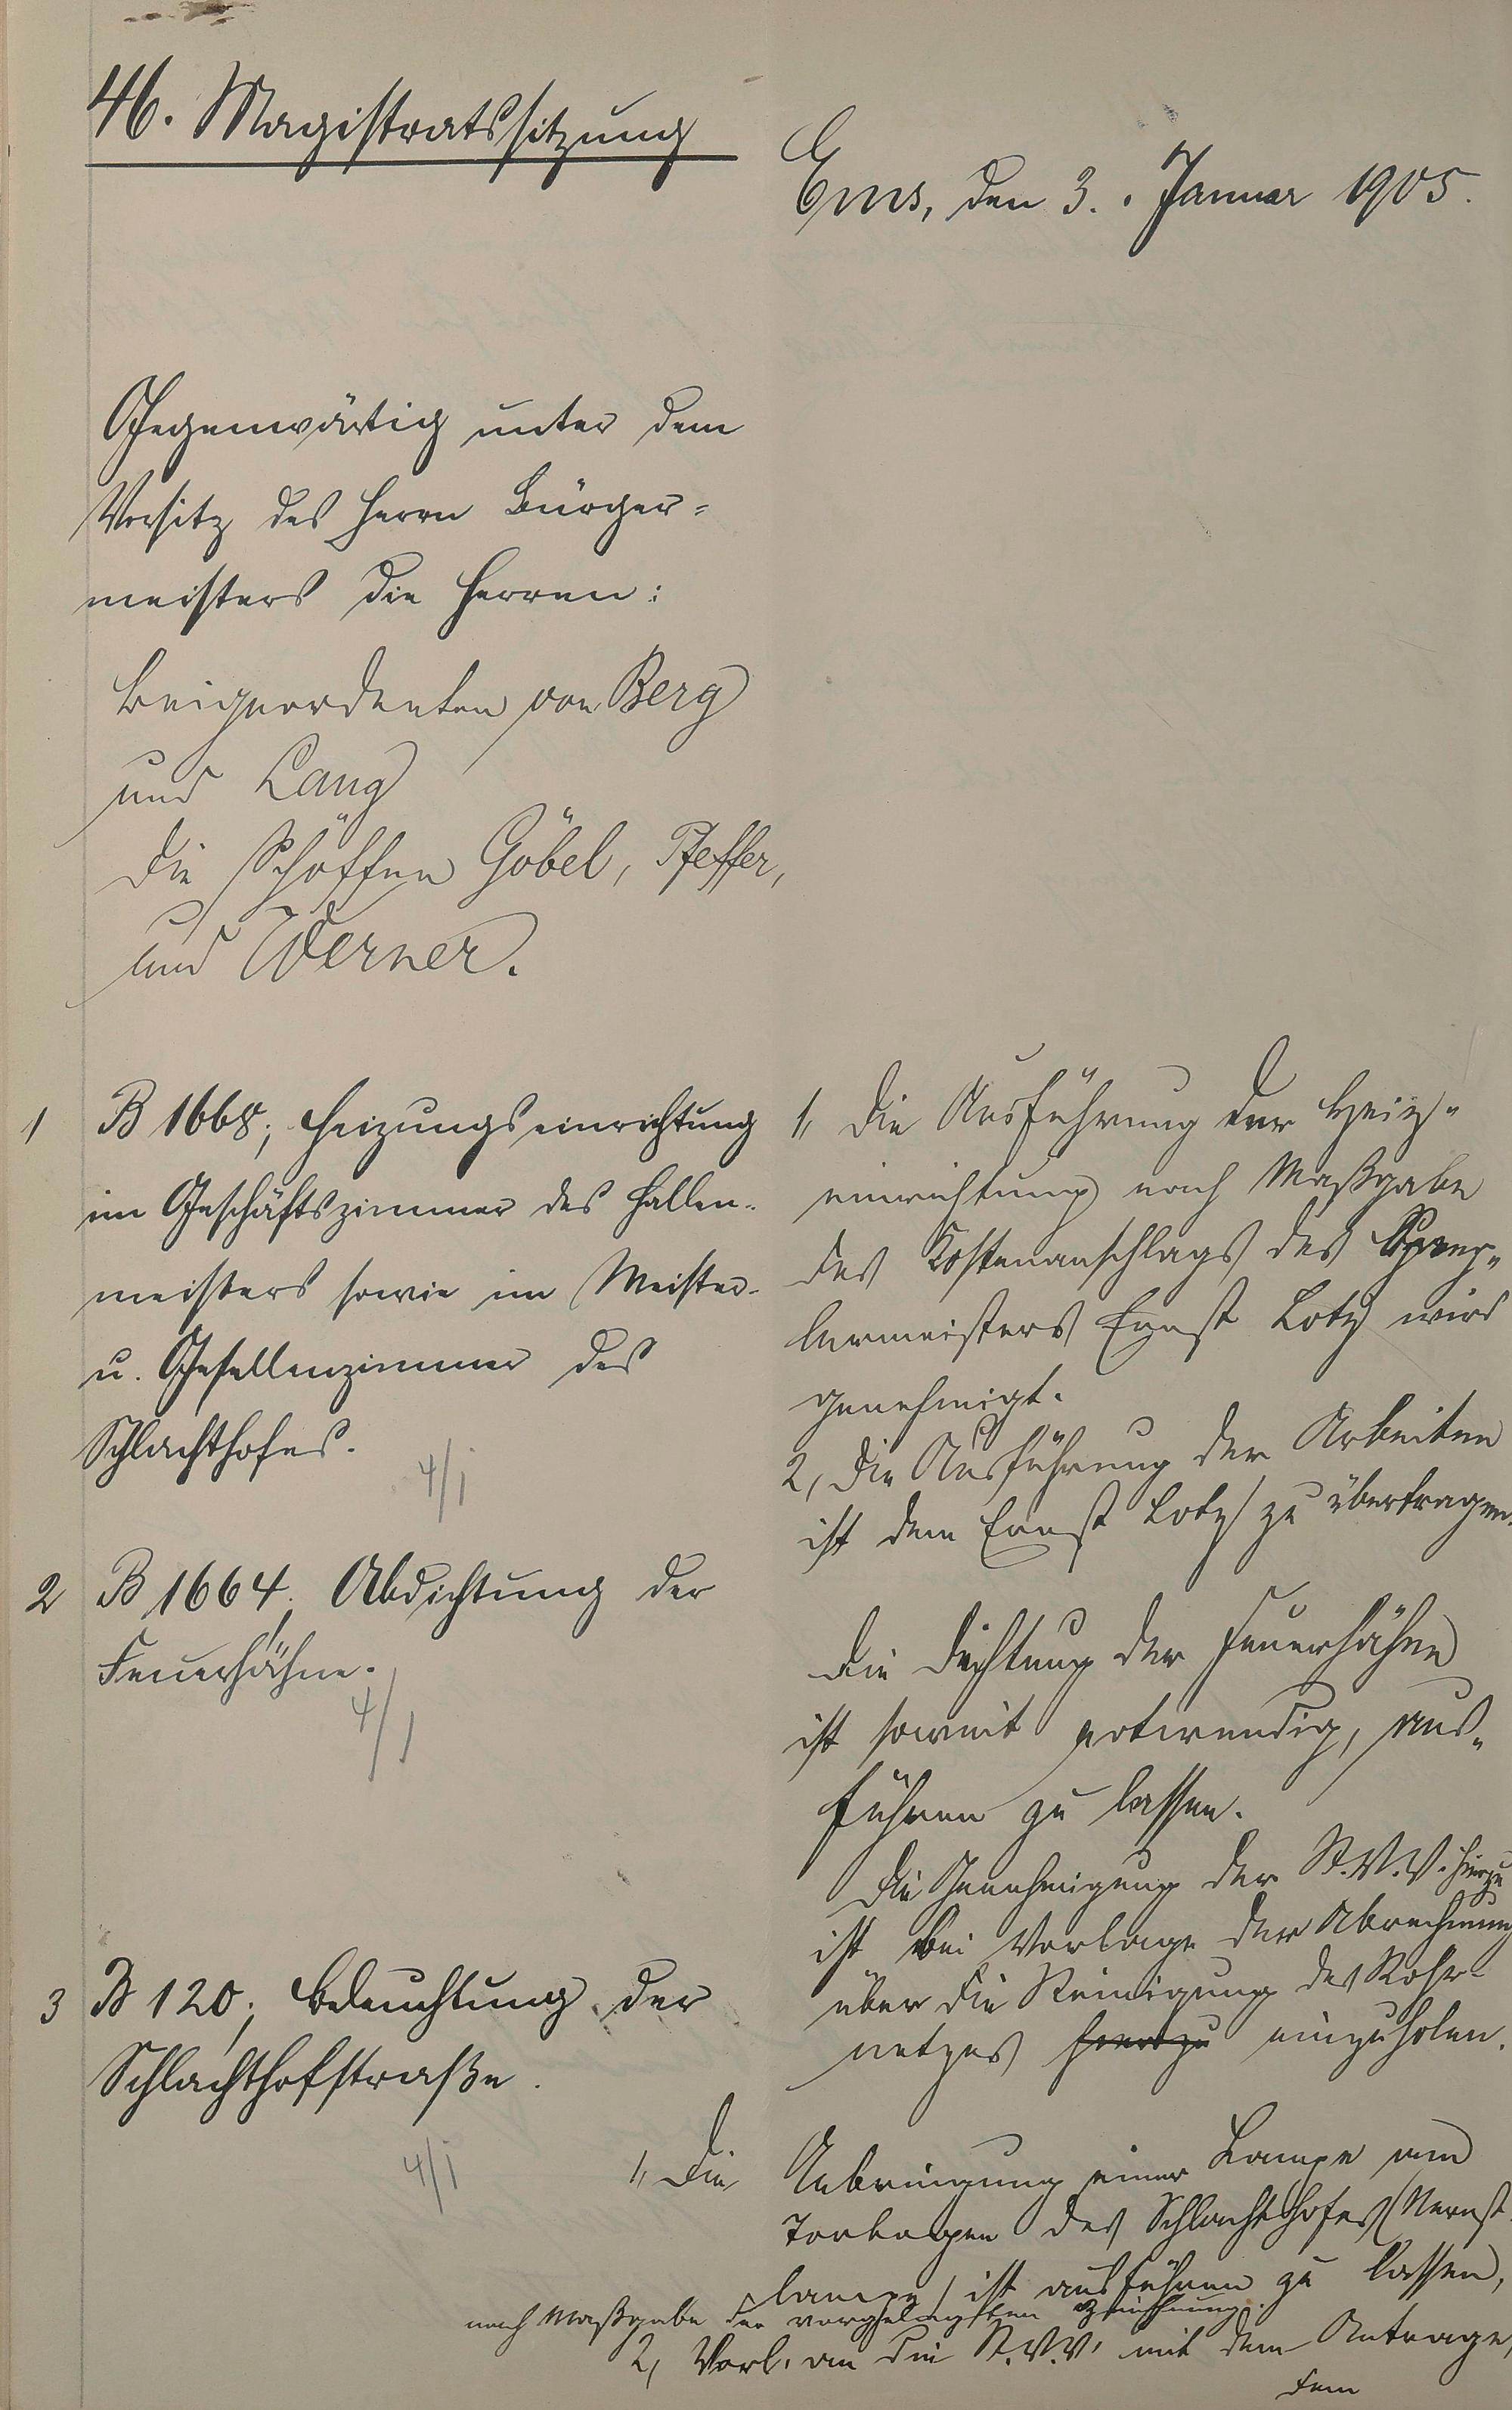 46. Magistratssitzung
Ems, den 3. Januar 1905.
Gegenwärtig unter dem
Vorsitz des Herrn Bürger=
meisters die Herren:
Beigeordneten von Berg
und Lang
die Schöffen Göbel, Pfeffer,
und Werner.
1 B 1668; Heizungseinrichtung
im Geschäftszimmer des Hallen-
meisters sowie im Meister-
u. Gesellenzimmer des
Schlachthofes.
4/1
1, Die Ausführung der Heiz-
einrichtung nach Maßgabe
des Kostenanschlags des Speng-
lermeisters Ernst Lotz wird
genehmigt.
2, Die Ausführung der Arbeiten
ist dem Ernst Lotz zu übertragen.
2 B 1664; Abdichtung der
Feuerhähne.
4/1
Die Dichtung der Feuerhähne
ist soweit notwendig, aus-
führen zu lassen.
Die Genehmigung der St.V.V. hierzu
ist bei Vorlage der Abrechnung
über die Reinigung des Rohr-
netzes hierzu einzuholen.
3 B 120; Beleuchtung der
Schlachthofstraße.
4/1
1, Die Anbringung einer Lampe am
Torbogen des Schlachthofes (Nernst-
lampe) ist ausführen zu lassen,
nach Maßgabe der vorgelegten Zeichnung.
2, Vorl. an die St.V.V. mit dem Antrage,
dem